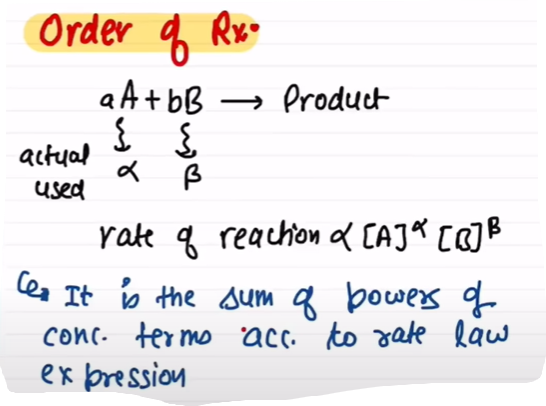 Order of Rxn
aA + bB → Product
actual used α β
rate of reaction α [A]^α [B]^β
It is the sum of powers of
conc. terms acc. to rate law
expression